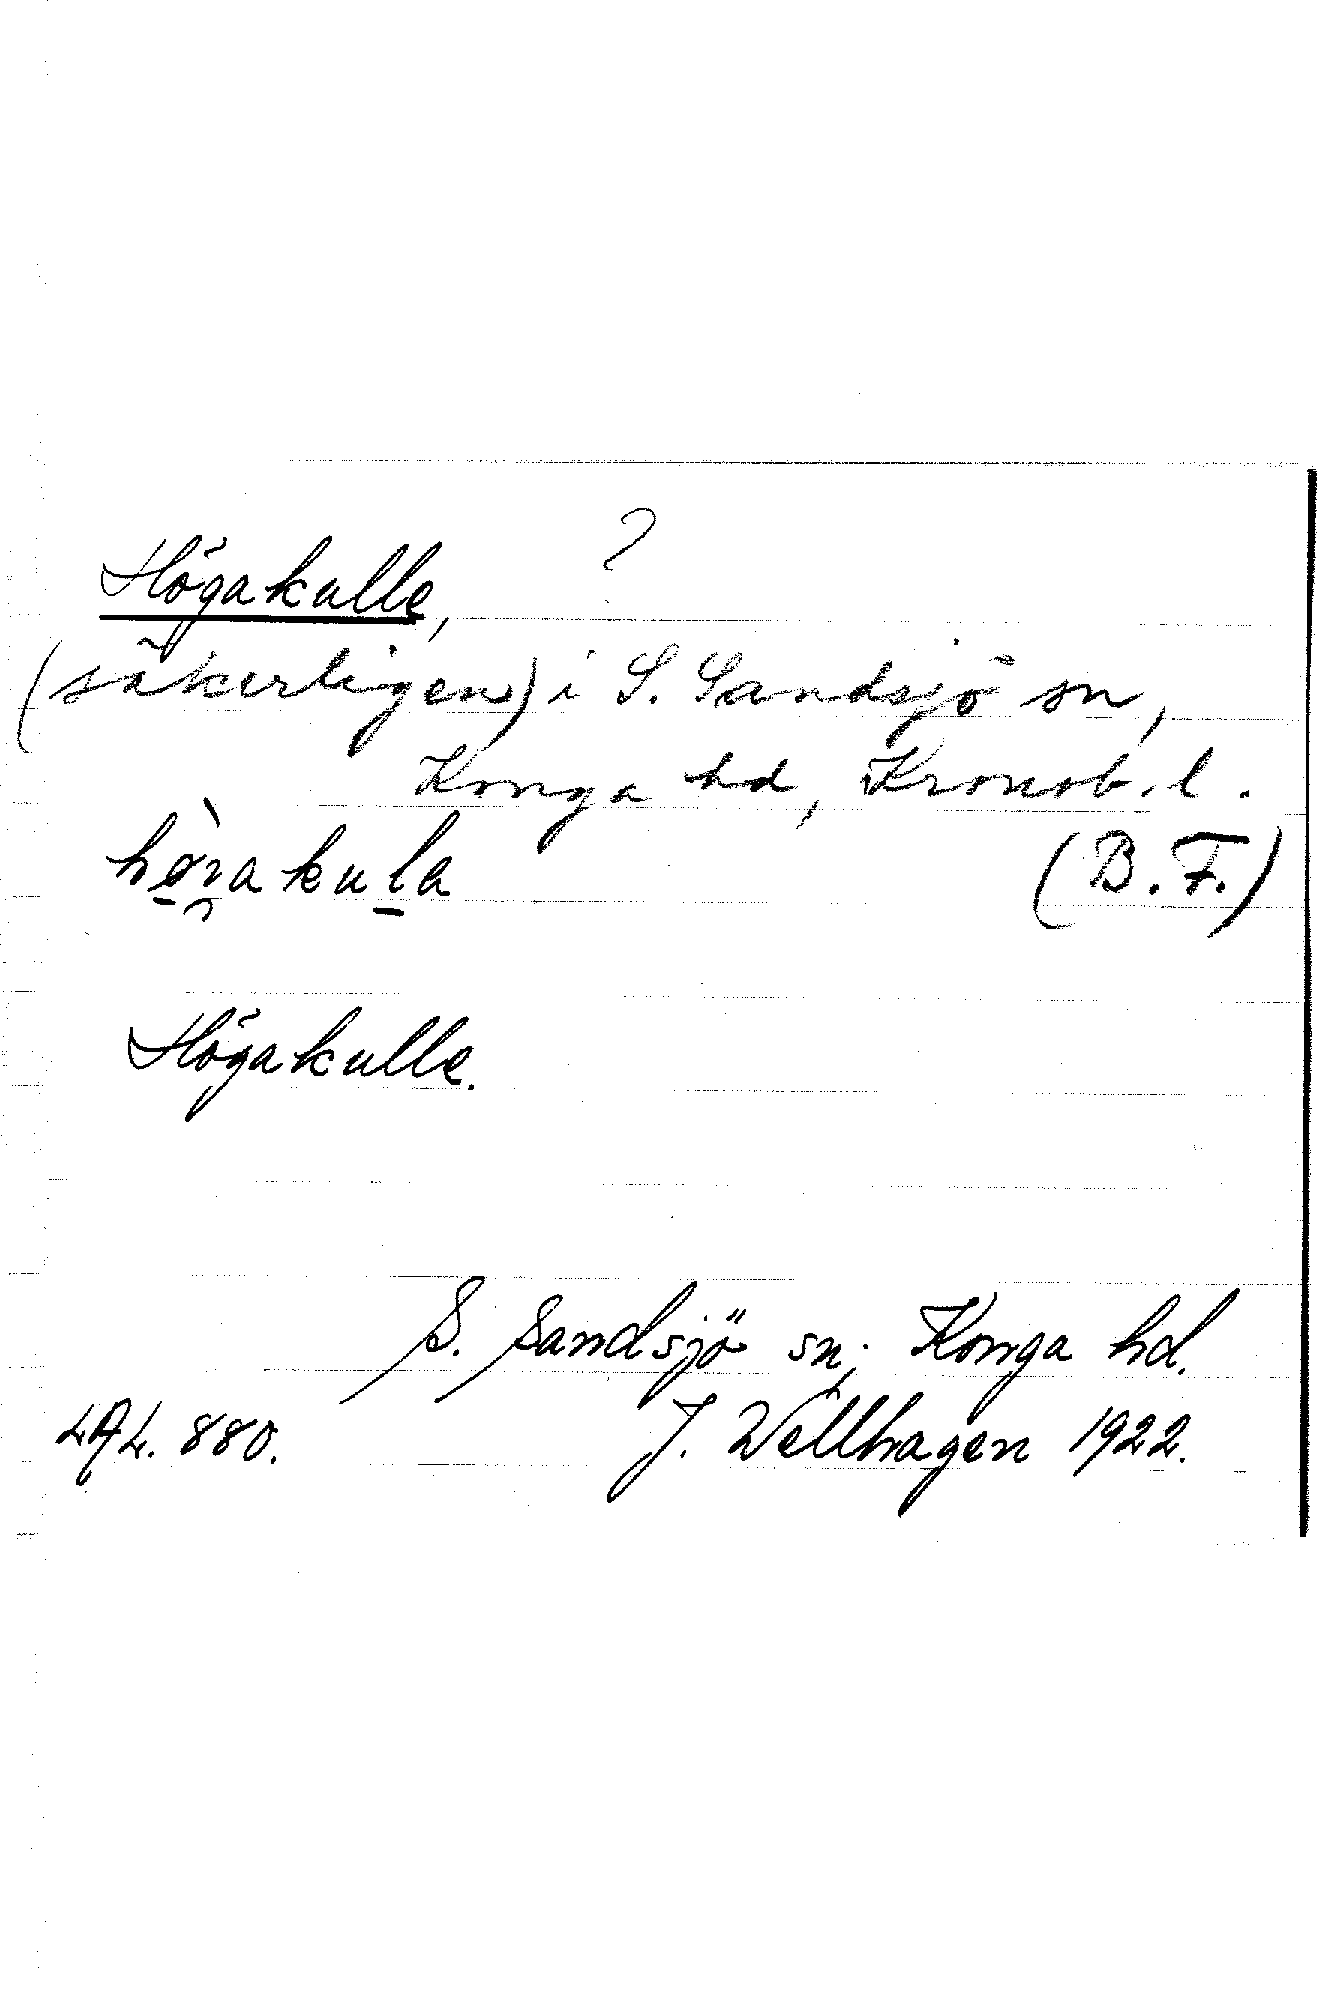 Högakulle, ?
(säkerligen) i S. Sandsjö sn,
Konga hd, Kronob. l.
(B. F.)
Högakulle.
S. Sandsjö sn; Konga hd.
LAL. 880. J. Wellhagen 1922.